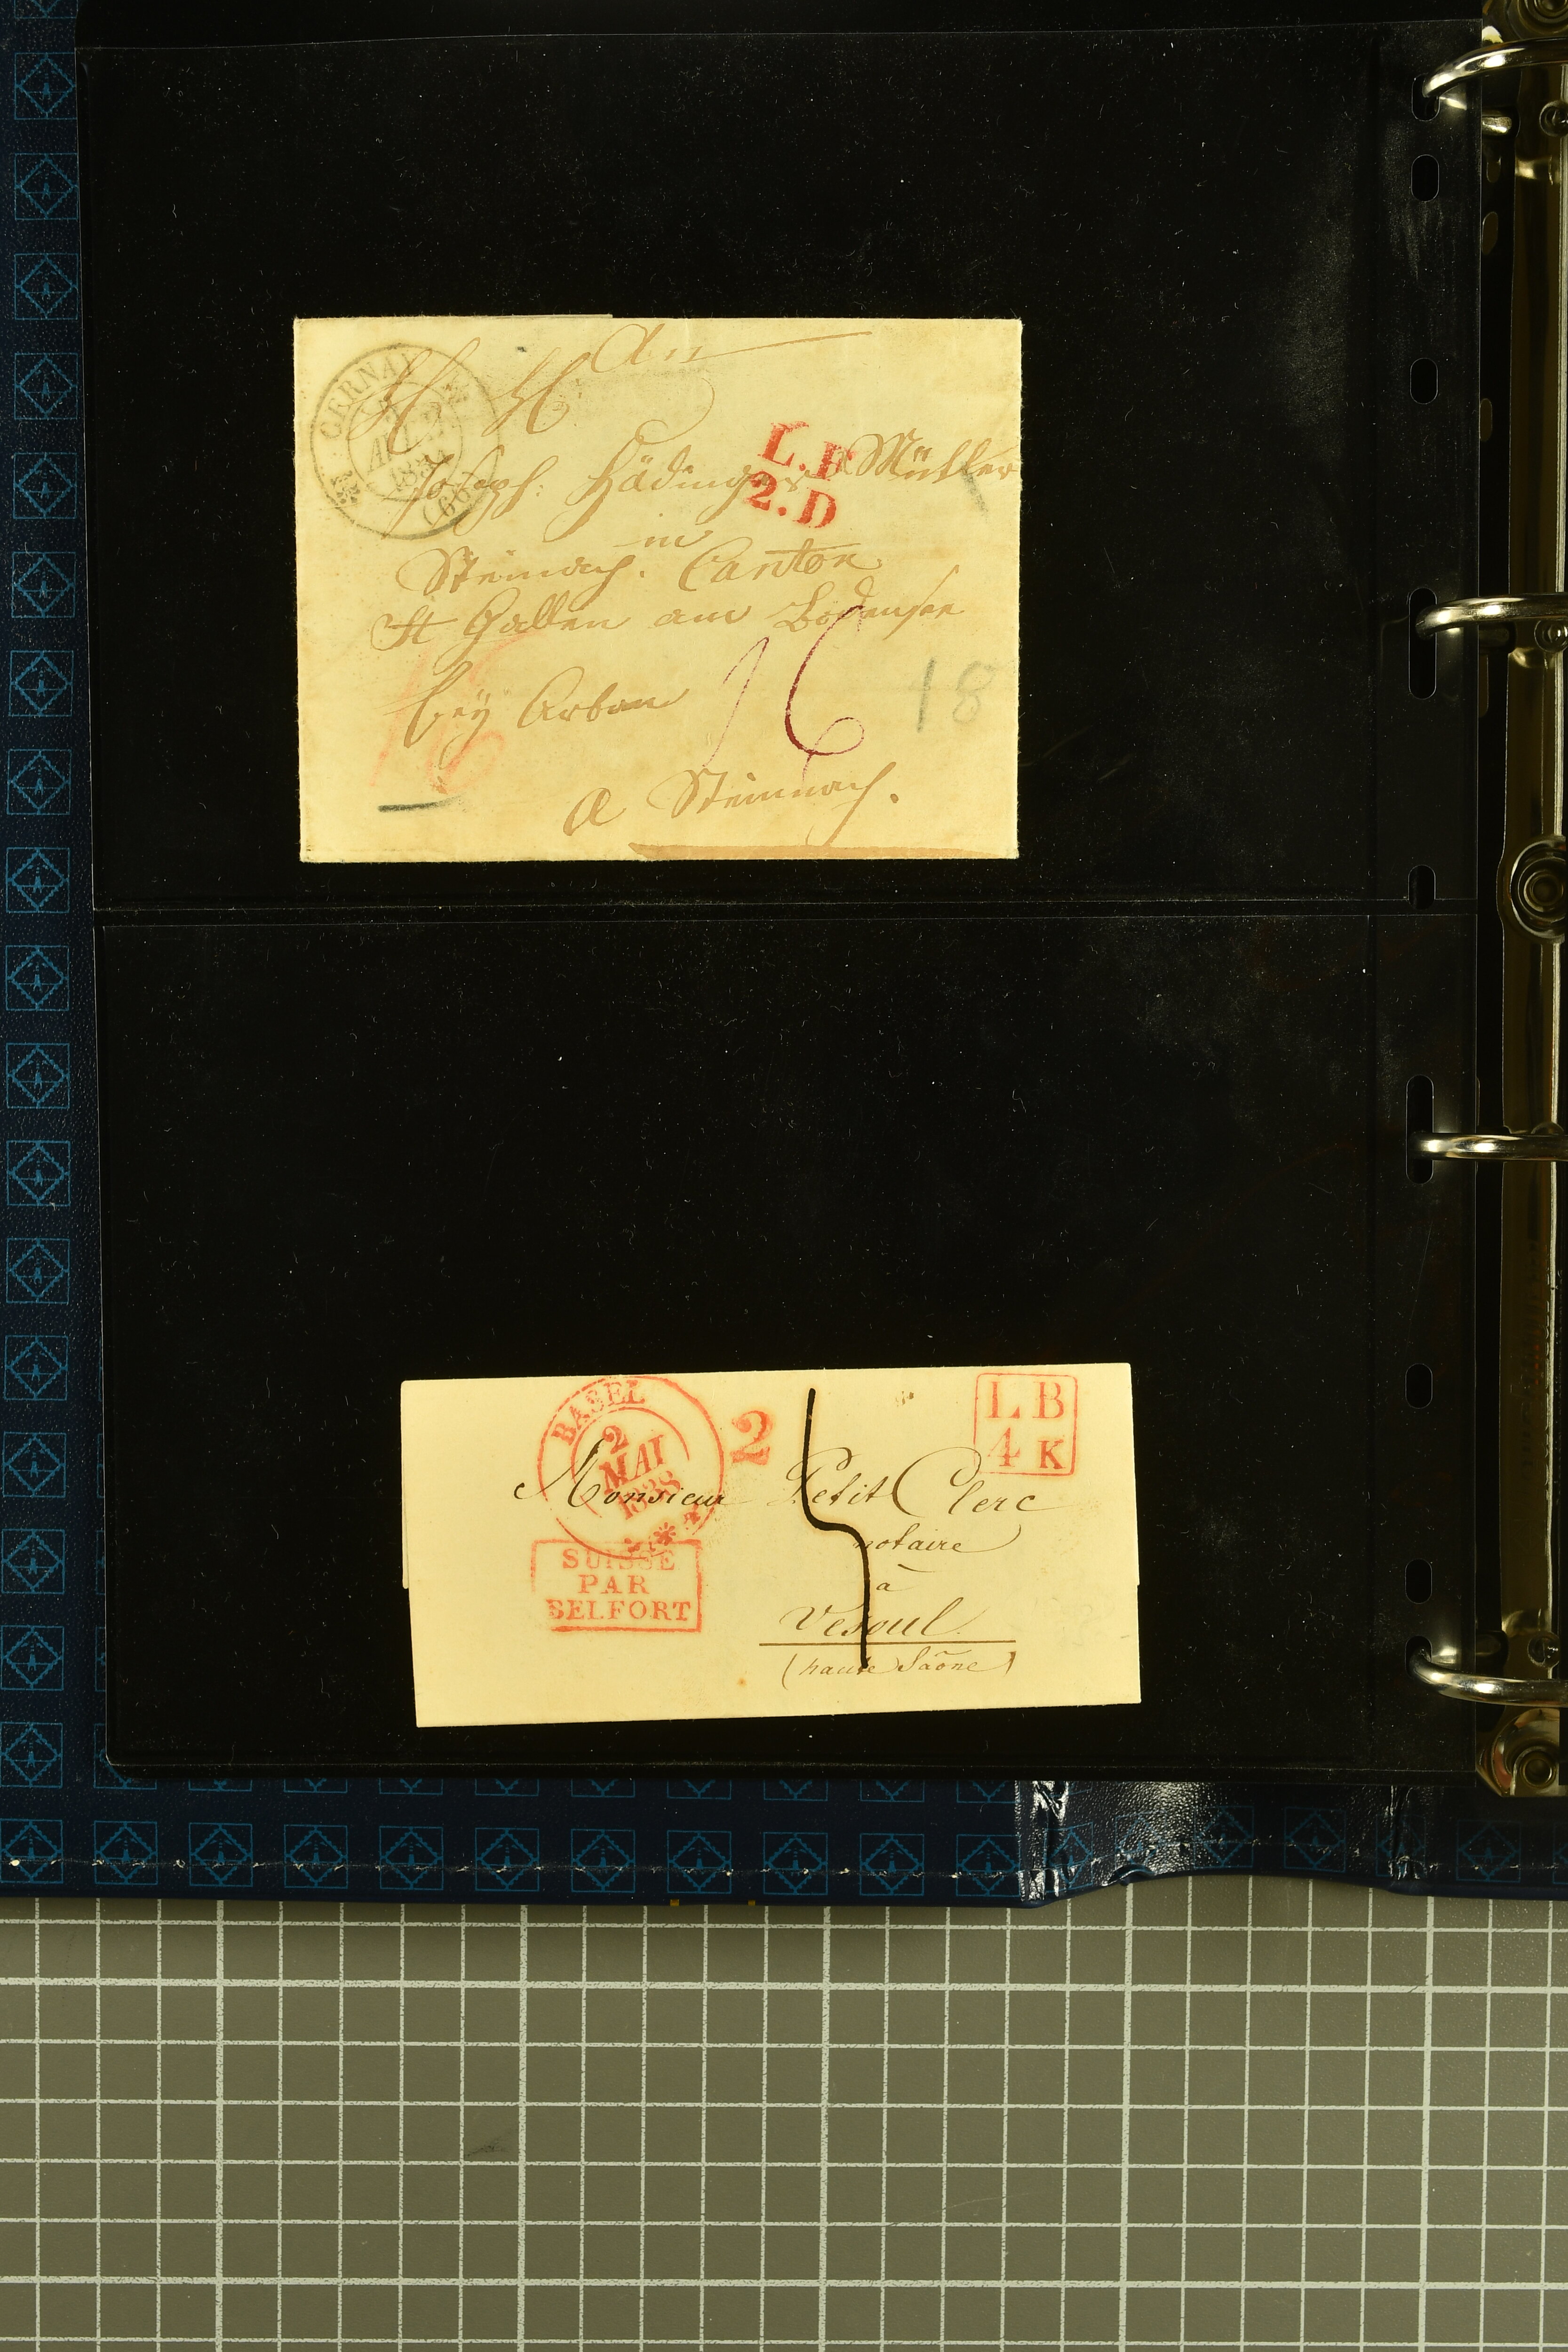 An
H H
CERNAY
2
(66)
L.F
2.D
Joseph: Hädinger Müller
in
Steinach. Canton
St Gallen am Bodensee
bey Arbon
16
16
18
a Steinnach.
BASEL
2
MAI
1838
2
LB
4K
Monsieur Petit Clerc
notaire
à
Vesoul
(haute Saône)
SUISSE
PAR
BELFORT